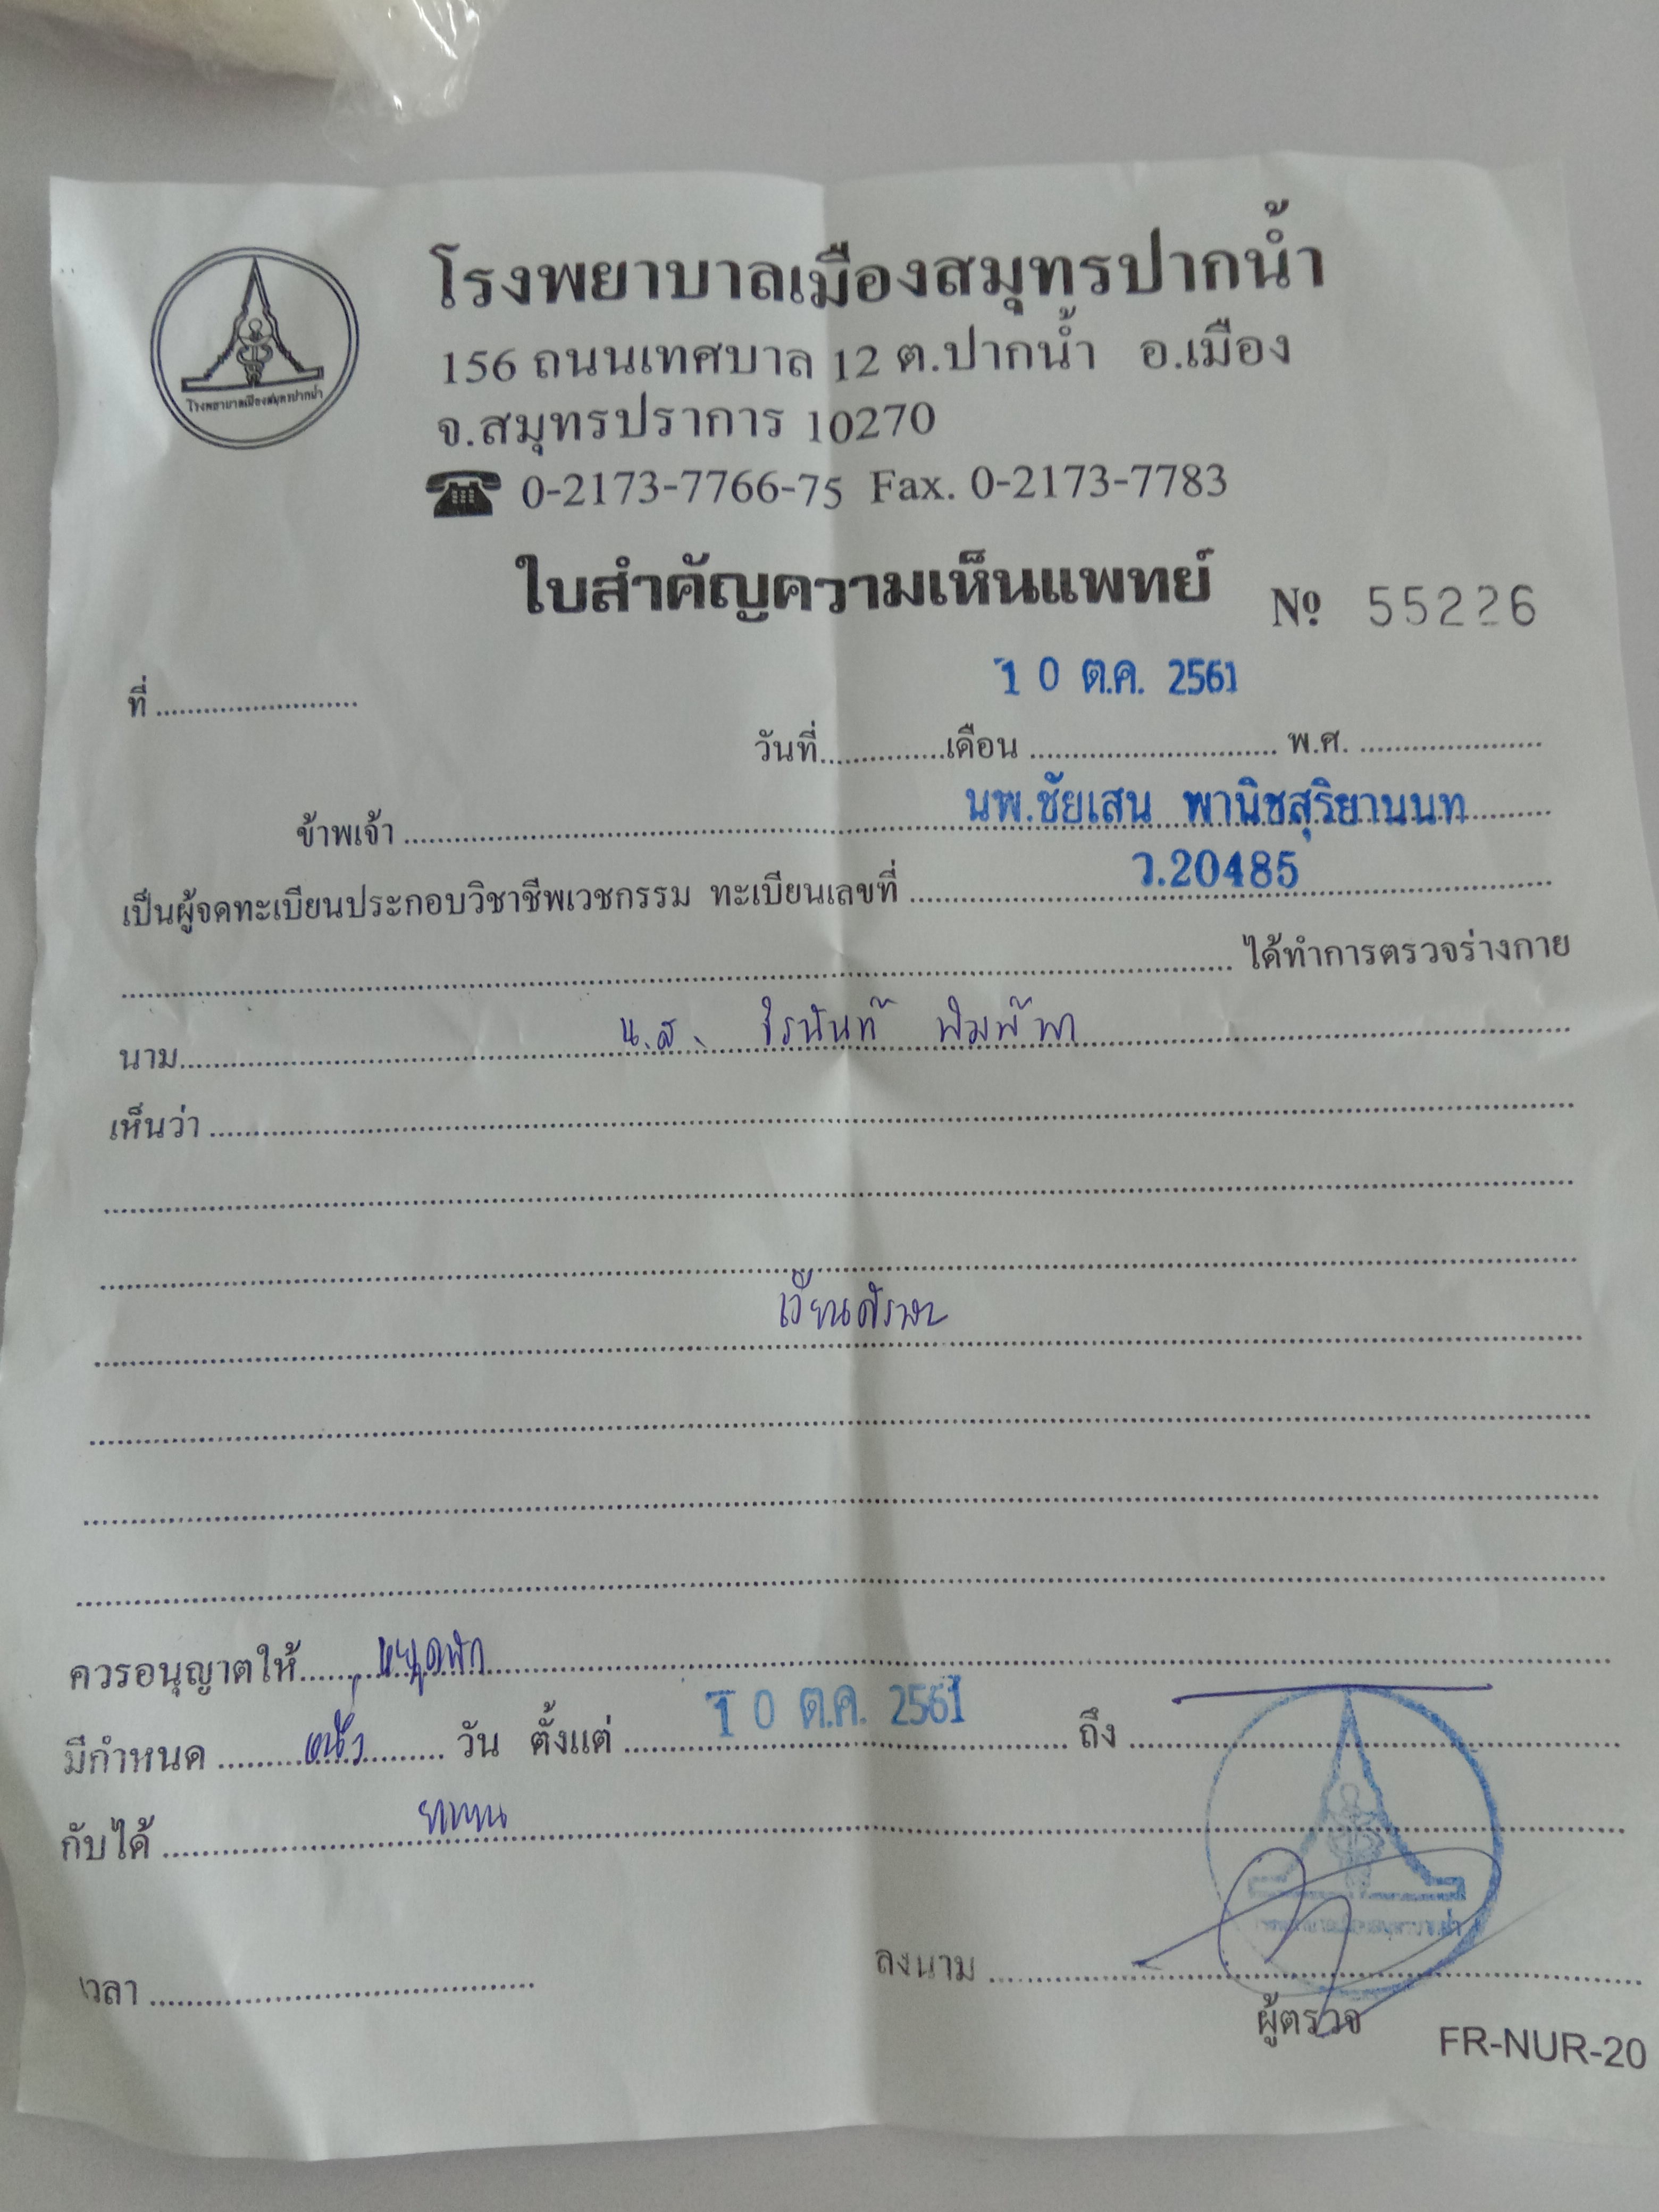 โรงพยาบาลเมืองสมุทรปากน้ำ
156 ถนนเทศบาล 12 ต.ปากน้ำ อ.เมือง
จ.สมุทรปราการ 10270
0-2173-7766-75 Fax. 0-2173-7783
โรงพยาบาลเมืองสมุทรปากน้ำ
ใบสำคัญความเห็นแพทย์ № 55226
ที่ ..........
10 ต.ค. 2561
วันที่..........เดือน .......... พ.ศ. ..........
ข้าพเจ้า .......... นพ.ชัยเสน พานิชสุริยานนท ..........
เป็นผู้จดทะเบียนประกอบวิชาชีพเวชกรรม ทะเบียนเลขที่ .......... ว.20485 ..........
.......... ได้ทำการตรวจร่างกาย
นาม.......... น.ส. จิรนันท์ พิมพ์พา ..........
เห็นว่า ..........
เวียนศีรษะ
ควรอนุญาตให้.......... หยุดพัก ..........
มีกำหนด .......... หนึ่ง .......... วัน ตั้งแต่ .......... 10 ต.ค. 2561 .......... ถึง ..........
กับได้ ..........
เวลา ..........
ลงนาม ..........
ผู้ตรวจ
FR-NUR-20